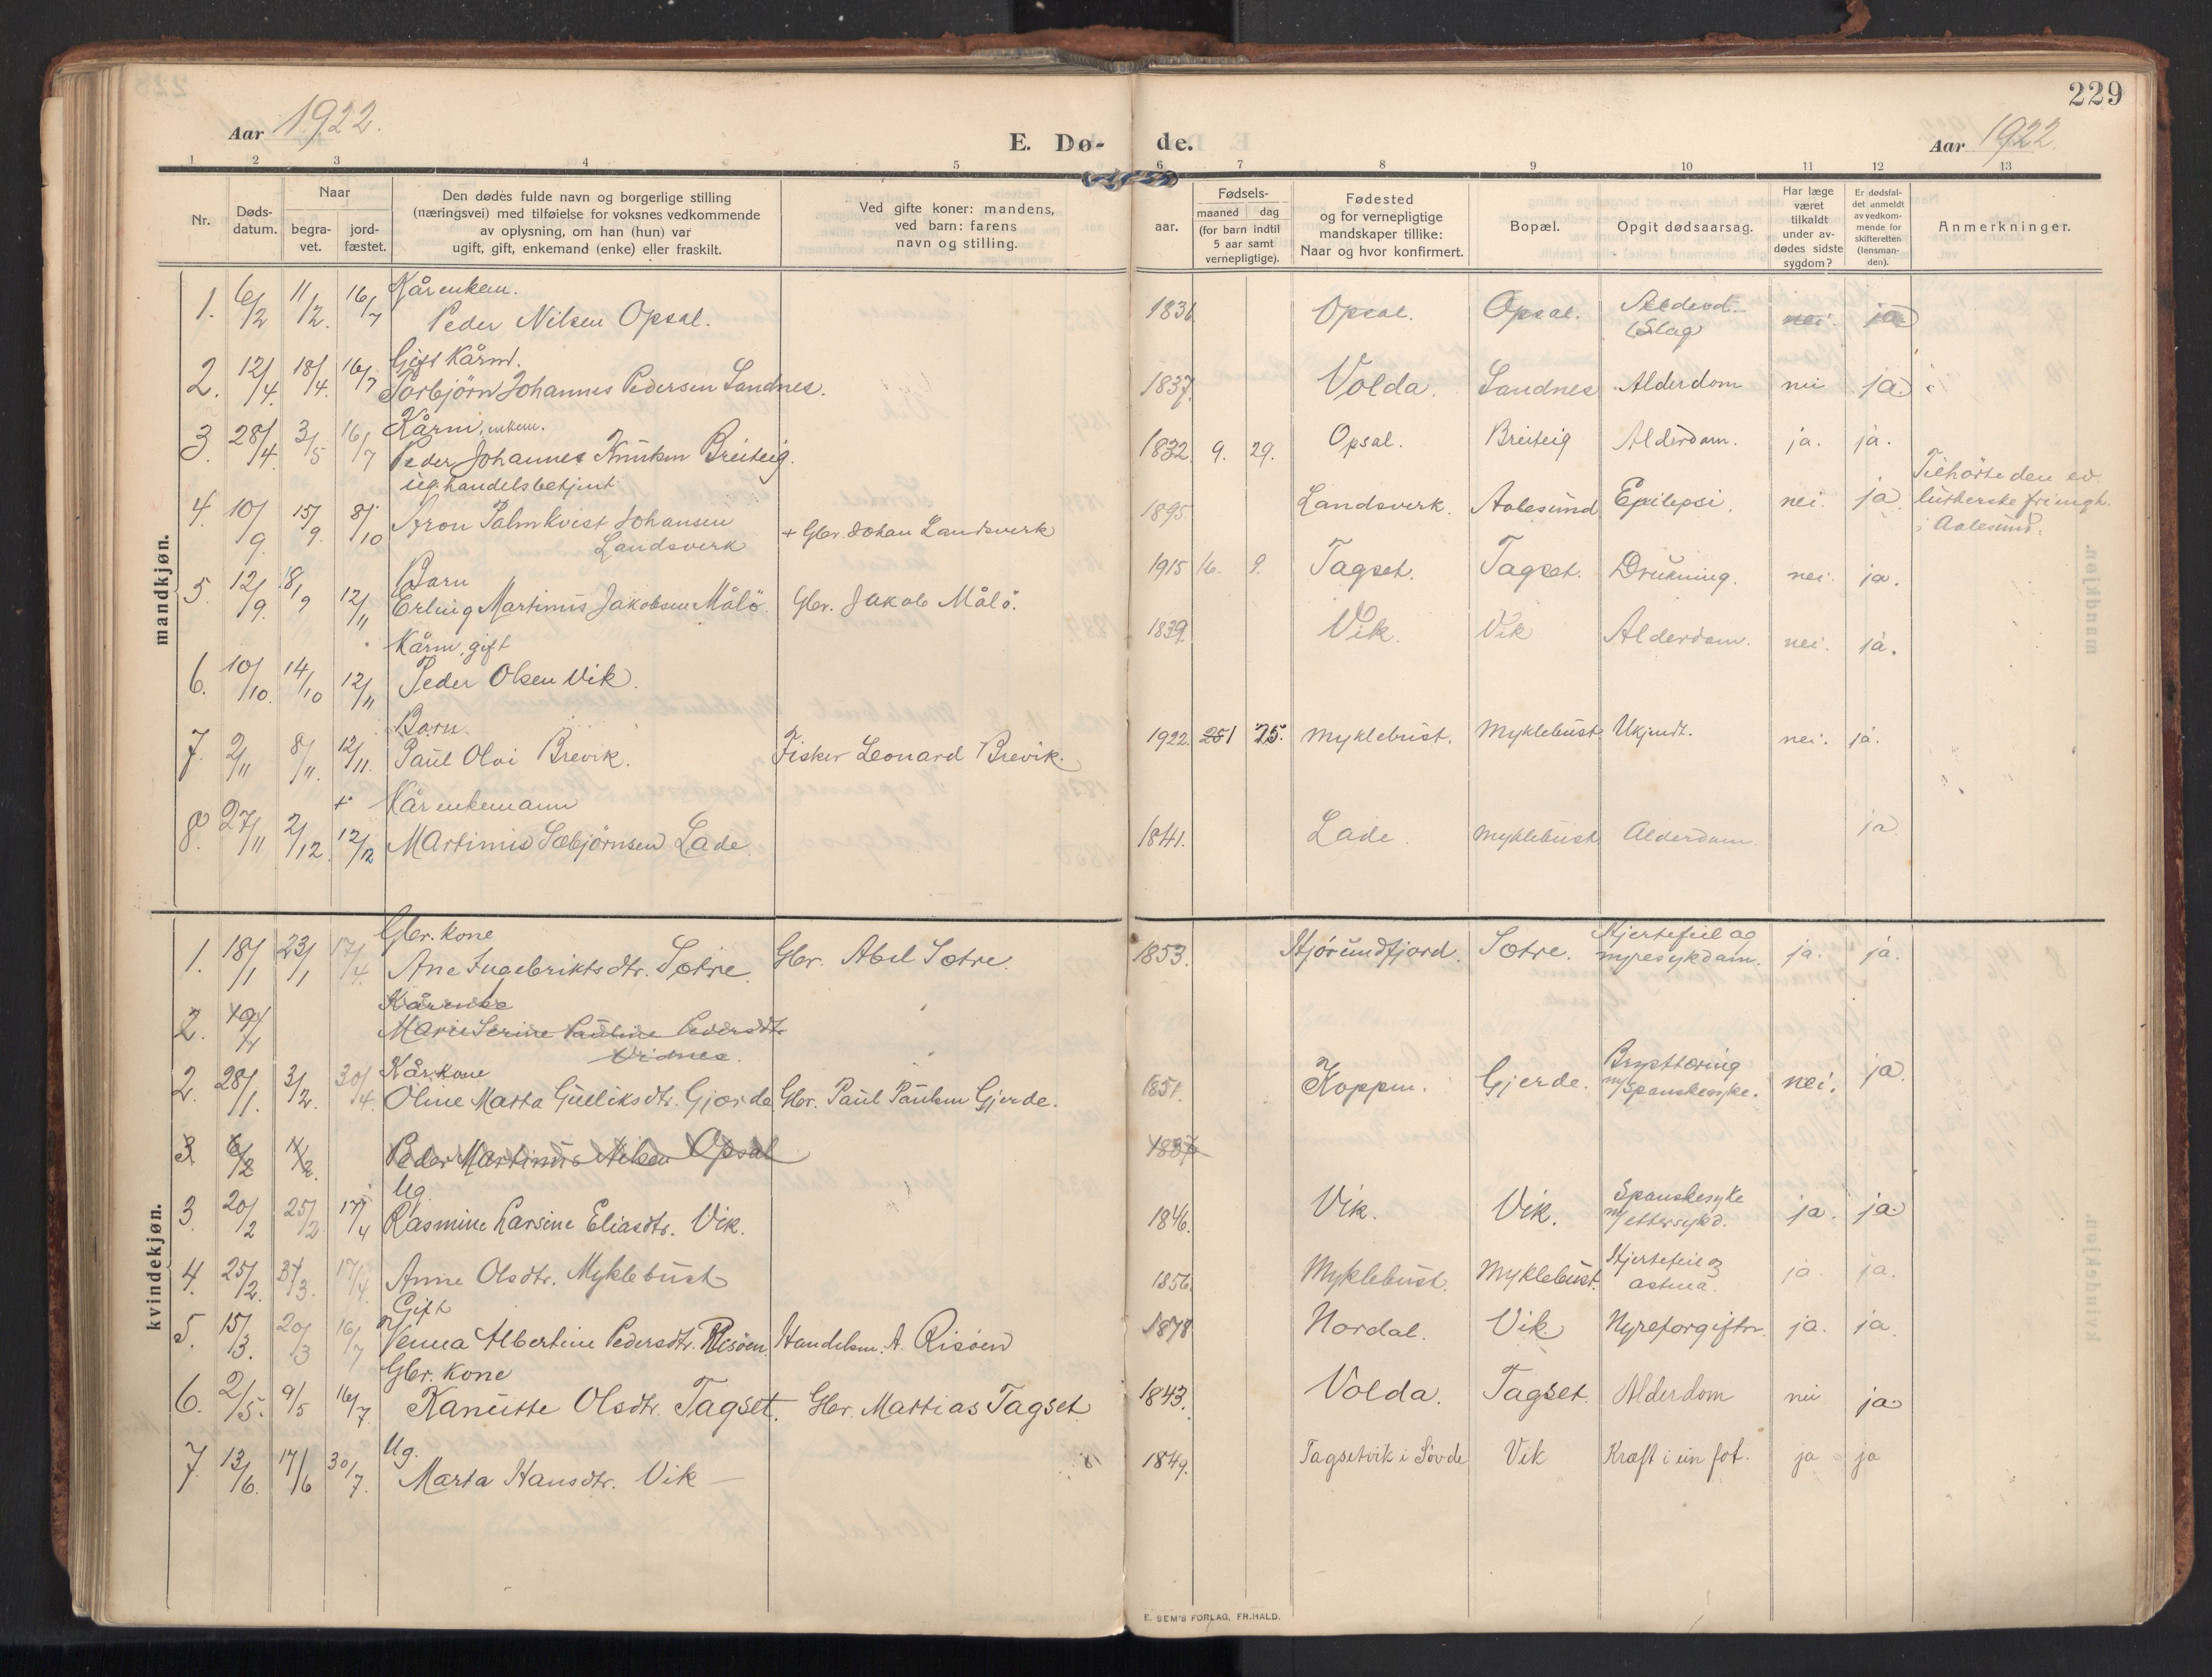 229
Aar 1922.
E. Dø-
de.
Aar 1922.
1 2 3 4 5 6 7 8 9 10 11 12 13
Nr.
Døds-
datum.
Naar
begra-
vet.
jord-
fæstet.
Den dødes fulde navn og borgerlige stilling
(næringsvei) med tilføielse for voksnes vedkommende
av oplysning, om han (hun) var
ugift, gift, enkemand (enke) eller fraskilt.
Ved gifte koner: mandens,
ved barn: farens
navn og stilling.
aar.
Fødsels-
maaned dag
(for barn indtil
5 aar samt
vernepligtige).
Fødested
og for vernepligtige
mandskaper tillike:
Naar og hvor konfirmert.
Bopæl.
Opgit dødsaarsag.
Har læge
været
tilkaldt
under av-
dødes sidste
sygdom?
Er dødsfal-
det anmeldt
av vedkom-
mende for
skifteretten
(lensman-
den).
Anmerkninger.
mandkjøn.
Kårenkem.
1. 6/2 11/2. 16/7 Peder Nilsen Opsal. 1836 Opsal. Opsal. Alderd. nei. ja
(Slag)
Gift Kårm.
2. 12/4. 18/4. 16/7 Torbjörn Johannes Pedersen Sandnes. 1837. Volda. Sandnes Alderdom nei ja.
Kårm, enkem.
3. 28/4. 3/5 16/7 Peder Johannes Knutsen Breiteig. 1832. 9. 29. Opsal. Breiteig Alderdom. ja. ja.
ug. handelsbetjent
4. 10/9. 15/9. 8/10 Aron Palmkvist Johansen
Landsverk + Gbr. Johan Landsverk 1895. Landsverk. Aalesund Epilepsi. nei. ja.
Tilhörte den ev.
lutherske frimgh.
i Aalesund.
Barn
5. 12/9. 18/9 12/11 Erling Martinus Jakobsen Målö. Gbr. Jakob Målö. 1915 16. 9. Tagset. Tagset. Drukning. nei. ja.
Kårm, gift
6. 10/10. 14/10 12/11 Peder Olsen Vik. 1839. Vik. Vik Alderdom. nei. ja.
Barn.
7. 2/11 8/11. 12/11. Paul Olvi Brevik. Fisker Leonard Brevik. 1922. 251 25. Myklebust. Myklebust Ukjendt. nei. ja.
+ Kårenkemann
8. 27/11 2/12. 12/12 Martinus Sæbjørnsen Lade 1841. Lade. Myklebust Alderdom ja
kvindekjøn.
Gbr. kone
1. 18/1 23/1 17/4. Ane Ingebriktsdtr. Sætre Gbr. Abel Sætre. 1853. Hjörundfjord. Sætre. Hjertefeil og
nyresykdom. ja. ja.
Kårenke
2. 19/1 Marie Serine Pauline Pedersdtr.
Kårkone
2. 28/1. 3/2. 30/4. Oline Marta Gulliksdtr. Gjærde Gbr. Paul Paulsen Gjerde. 1851. Koppen. Gjerde. Brysttæring
m/spanskesyke. nei. ja.
3 6/2 11/2. Peder Martinus Nilsen Opsal 1837
Ug.
3. 20/2 25/2 17/4 Rasmine Larsine Eliasdtr. Vik. 1846. Vik. Vik. Spanskesyke
m/ettersykd. ja. ja.
4. 25/2. 31/3. 17/4. Anne Olsdtr. Myklebust 1856. Myklebust. Myklebust. Hjertefeil og
astma. ja. ja.
Gift
5. 15/3. 20/3 16/7 Venna Albertine Pedersdtr. Risöen. Handelsm. A. Risöen 1878 Nordal. Vik. Nyreforgiftn. ja. ja.
Gbr. kone
6. 2/5. 9/5 16/7. Kanutte Olsdtr. Tagset. Gbr. Mattias Tagset. 1843. Volda. Tagset. Alderdom nei ja.
Ug.
7. 13/6. 17/6 30/7. Marta Hansdtr. Vik — 1849. Tagsetvik i Sövde Vik Kræft i ein fot. ja ja
E. SEM'S FORLAG, FR.HALD.